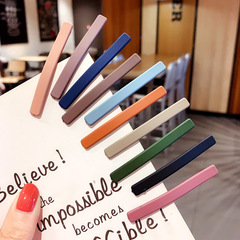 Believe!
the
impossible
becomes
Cible!